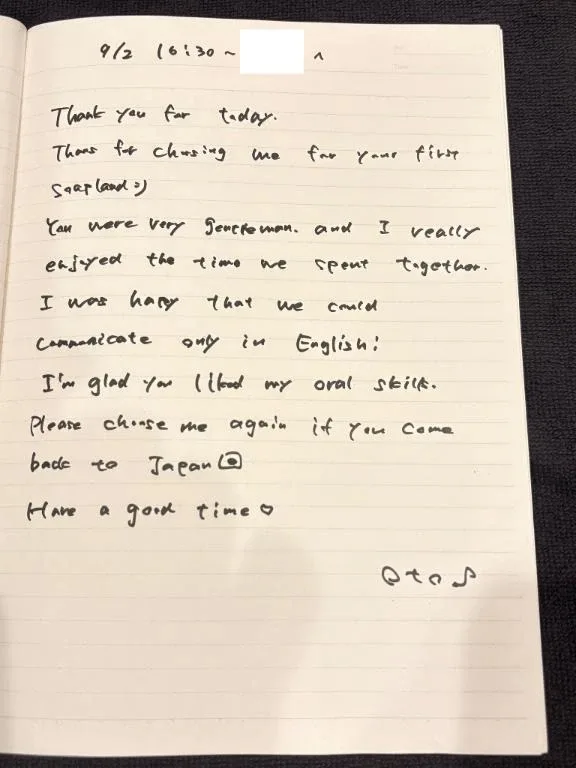 9/2 16:30 ~ へ
Thank you for today.
Thans for choosing me for your first
soapland :)
You were very gentleman. and I really
enjoyed the time we spent together.
I was happy that we could
communicate only in English!
I'm glad you liked my oral skills.
Please choose me again if you come
back to Japan
Have a good time♡